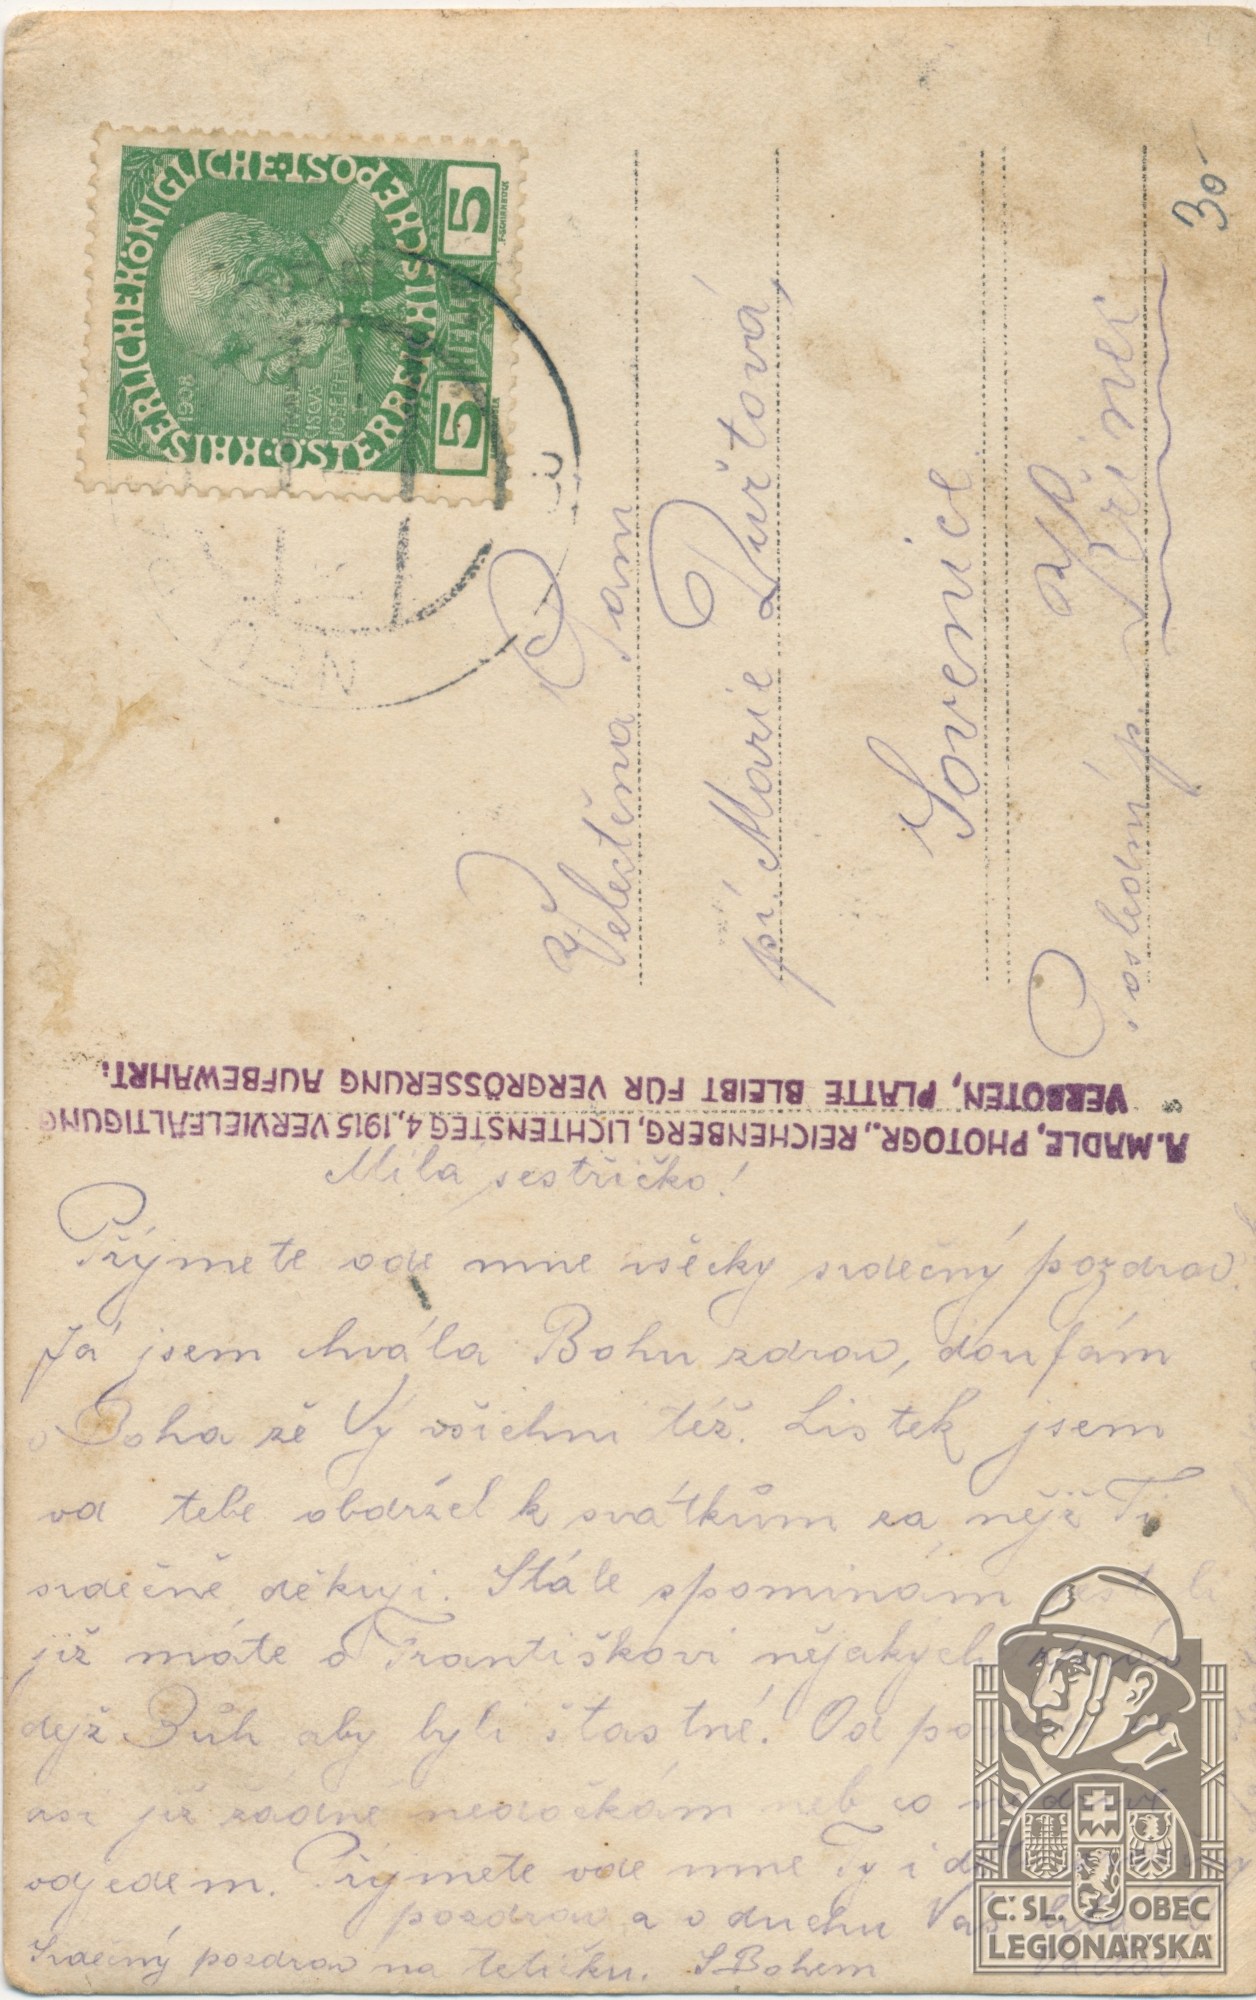 KAISERLICHE KÖNIGLICHE ÖSTERREICHISCHE POST
1908
5 HELLER 5
30
Velectěná Paní
pí. Marie Purtová,
Sovenice
Poslední p. Křinec
A. MADLE, PHOTOGR., REICHENBERG, LICHTENSTEG 4, 1915 VERVIELFÄLTIGUNG
VERBOTEN, PLATTE BLEIBT FÜR VERGRÖSSERUNG AUFBEWAHRT.
Milá sestřičko!
Přýmete ode mne všecky srdečný pozdrav.
Já jsem chvála Bohu zdrav, doufám
v Boha že Vý všichni též. Lístek jsem
od tebe obdržel k svátkům za nějž Ti
srdečně děkuji. Stále spomínám
již máte o Františkovi nějakých
dejž Bůh aby byli šťastné! Od
asi již žádné nedočkám neb co
odjedem. Přýmete ode mne Ty i
pozdrav a v duchu Vás
Srdečný pozdrav na tetičku. S Bohem
Č. SL. OBEC
LEGIONÁŘSKÁ